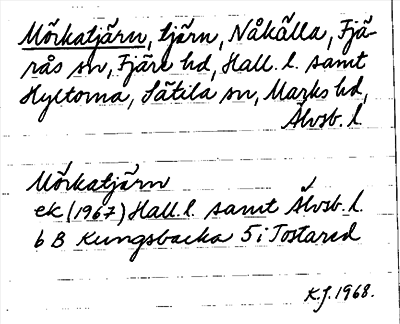 Mörkatjärn, tjärn, Nåkälla, Fjä-
rås sn, Fjäre hd, Hall. l. samt
Hyltorna, Sätila sn, Marks hd,
Älvsb. l
Mörkatjärn
ek (1967) Hall. l. samt Älvsb. l.
6 B Kungsbacka 5 i Tostared
K.J. 1968.